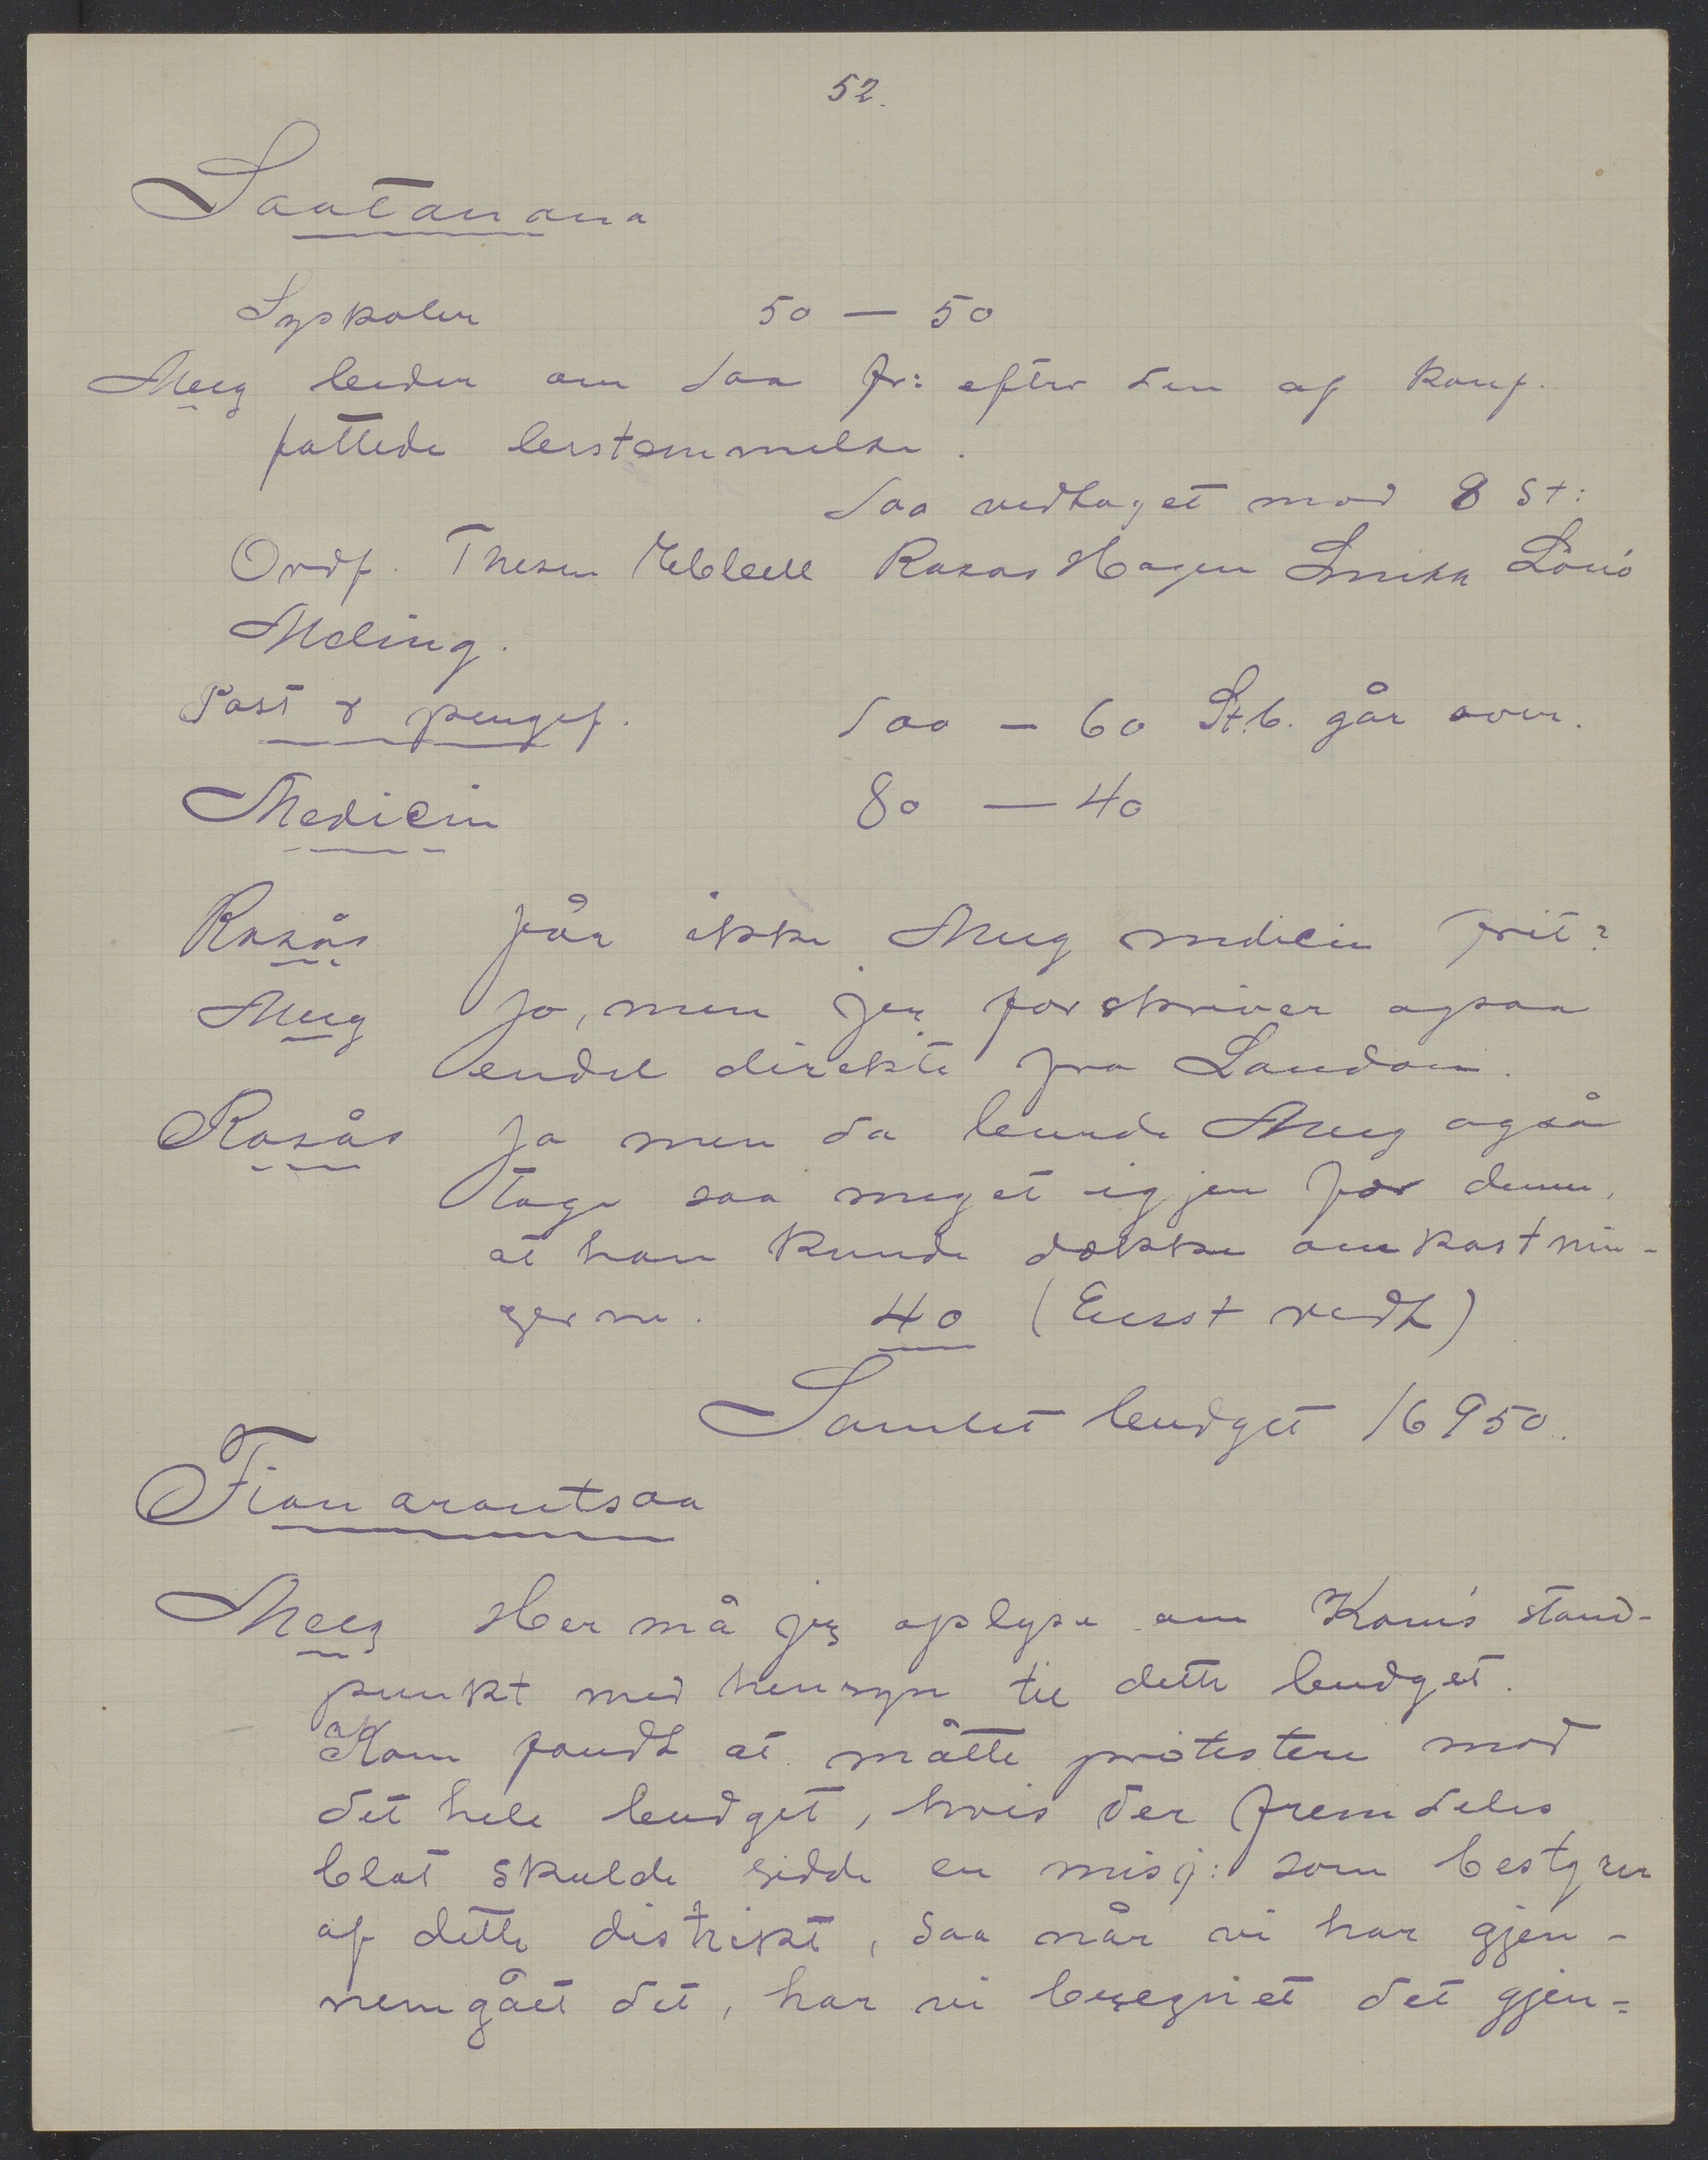 52.
Soatanana
Syskolen 50 — 50
Meeg beder om 100 fr: efter den af konf.
fattede bestemmelse.
100 vedtaget mod 8 St:
Ordf. Thesen Ebbell Rosaas Hagen Smith Lönö
Meling.
Post & pengef. 100 — 60 St.b. går over.
Medicin 80 — 40
Rosås får ikke Meeg medicin frit?
Meeg Jo, men jeg forskriver ogsaa
endel direkte fra London.
Rosås Ja men da burde Meeg også
tage saa meget igjen for denne,
at han kunde dække omkostnin-
gerne. 40 (Eenst vedt)
Samlet budget 16950.
Fianarantsoa
Meeg Her må jeg oplyse om Kom's stand-
punkt med hensyn til dette budget.
Kom fandt at måtte protestere mod
det hele budget, hvis der fremdeles
blot skulde sidde en misj: som bestyrer
af dette distrikt, saa når vi har gjen-
nemgået det, har vi beregnet det gjen=